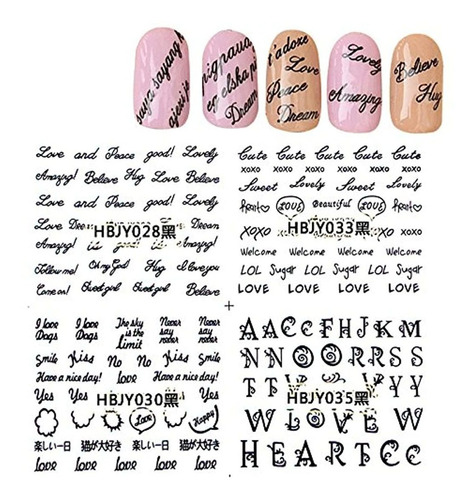 saya sayang
ajeni je
mignaug
eg elska þi
Dream
t'adore
Love
Peace
Dream
Lovely
Amazing
Believe
Hug
Love and Peace good! Lovely
Amazing! Believe Hug Love Believe
Love and Peace good! Lovely
Love Dream
HBJY028黑
Amazing! is good! is Amazing!
Follow me! Oh my God! Hug I love you
Come on! Sweet girl Sweet girl Believe
Cute Cute Cute Cute Cute
xoxo xoxo xoxo xoxo xoxo
Sweet Lovely Sweet Lovely
LOVE Beautiful LOVE
HBJY033黑
xoxo xoxo
Welcome Welcome Welcome Welcome
LOL Sugar LOL Sugar LOL
LOVE LOVE LOVE LOVE
I love Dogs I love Dogs The sky is the Limit Never say never Never say never
Smile Kiss No No Kiss Smile
Have a nice day! love Have a nice day!
Yes Yes Yes Yes
HBJY030黑
Love Love Happy!
楽しい一日 猫が大好き love 楽しい一日 猫が大好き
love love love love love
A A C C F H J K M
N N O O R R S S
T T V Y Y
HBJY035黑
W W L O V E
H E A R T C C